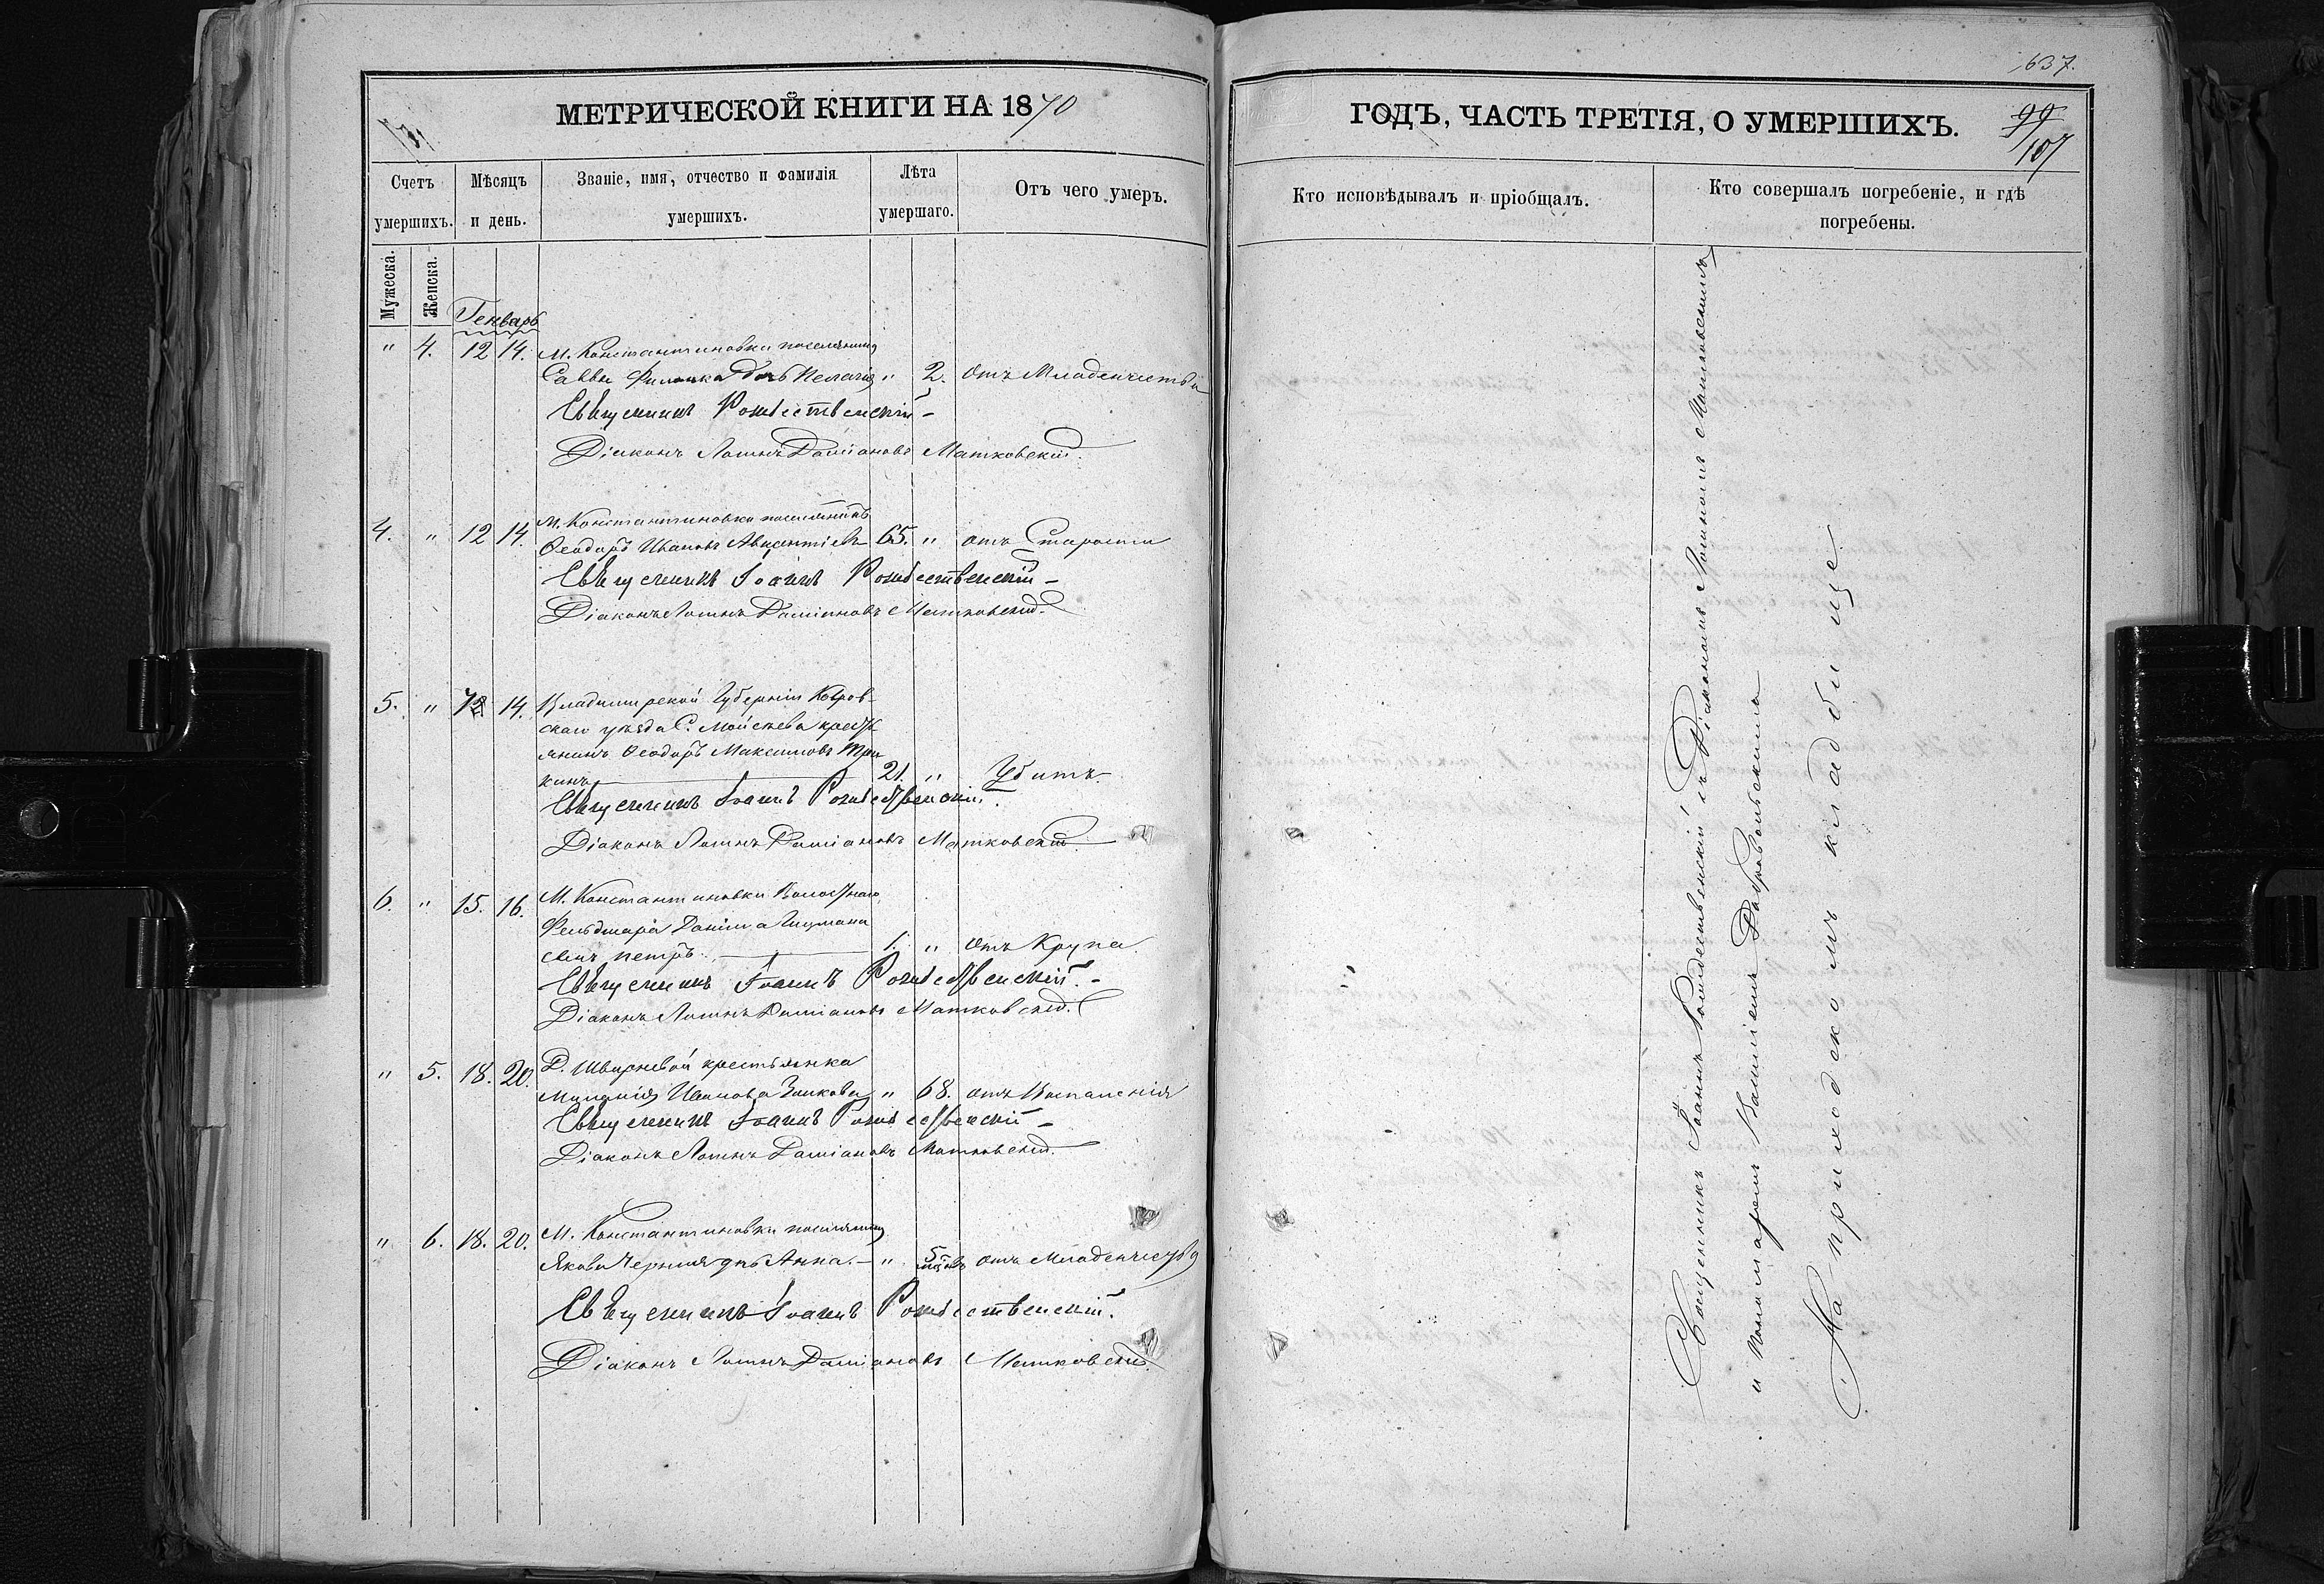 637.
МЕТРИЧЕСКОЙ КНИГИ НА 1870
ГОДЪ, ЧАСТЬ ТРЕТІЯ, О УМЕРШИХЪ.
99
107
Счетъ умершихъ.
Мѣсяцъ и день.
Званіе, имя, отчество и фамилія умершихъ.
Лѣта умершаго.
Отъ чего умеръ.
Кто исповѣдывалъ и пріобщалъ.
Кто совершалъ погребеніе, и гдѣ погребены.
Мужеска.
Женска.
Генварь
" 4. 12 14. М. Константиновки поселянина
Саввы дочь Пелагія " 2. отъ Младенчества
Священникъ Рождественскій
Діаконъ Логинъ Даміановъ Матковскій.
4. " 12 14. М. Константиновки поселянинъ
Ѳеодоръ Ивановъ Авксентіевъ 65. " отъ Старости
Священникъ Іоаннъ Рождественскій
Діаконъ Логинъ Даміановъ Матковскій.
5. " 12 14. Владимирской Губерніи Ковров-
скаго уѣзда С. Мойсеева кресть
янинъ Ѳеодоръ Максимовъ
кинъ 21. " Убитъ.
Священникъ Іоаннъ Рождественскій.
Діаконъ Логинъ Даміановъ Матковскій
6. " 15. 16. М. Константиновки Волостнаго
Фельдшара Даніила
сынъ Петръ. 1. " отъ Крупа
Священникъ Іоаннъ Рождественскій.
Діаконъ Логинъ Даміановъ Матковскій.
" 5. 18. 20. Д. крестьянка
Меланія Иванова " 68. отъ Воспаленія
Священникъ Іоаннъ Рождественскій
Діаконъ Логинъ Даміановъ Матковскій.
" 6. 18. 20. М. Константиновки поселянина
Якова дчь Анна. " 5 мцовъ отъ Младенчества
Священникъ Іоаннъ Рождественскій.
Діаконъ Логинъ Даміановъ Матковскій.
Священникъ Іоаннъ Рождественскій съ Діакономъ Логиномъ Матковскимъ
и Пономаремъ Василіемъ Добровольскимъ
На приходскомъ кладбище.